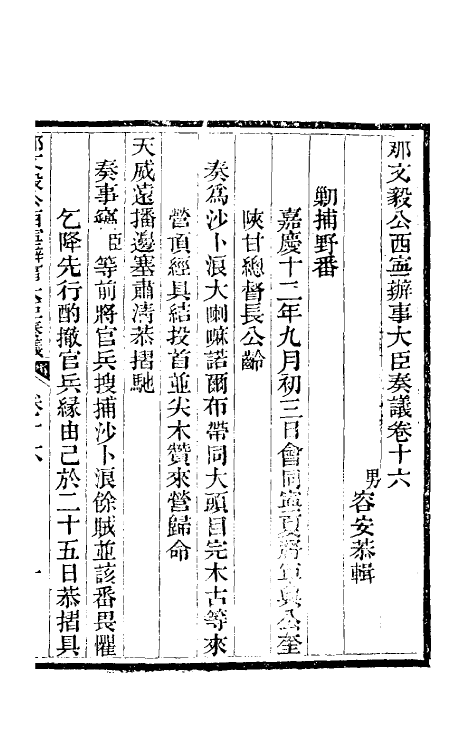 那文毅公西寧辦事大臣奏議卷十六
男容安恭輯
勦捕野番
嘉慶十二年九月初三日會同寧夏將軍興公奎
陝甘總督長公齡
奏爲沙卜浪大喇嘛諾爾布帶同大頭目完木古等來
營頂經具結投首並尖木贊來營歸命
天威遠播邊塞肅清恭摺馳
奏事竊臣等前將官兵搜捕沙卜浪餘賊並該番畏懼
乞降先行酌撤官兵緣由已於二十五日恭摺具
那文毅公西寧辦事大臣奏議
卷十六
一